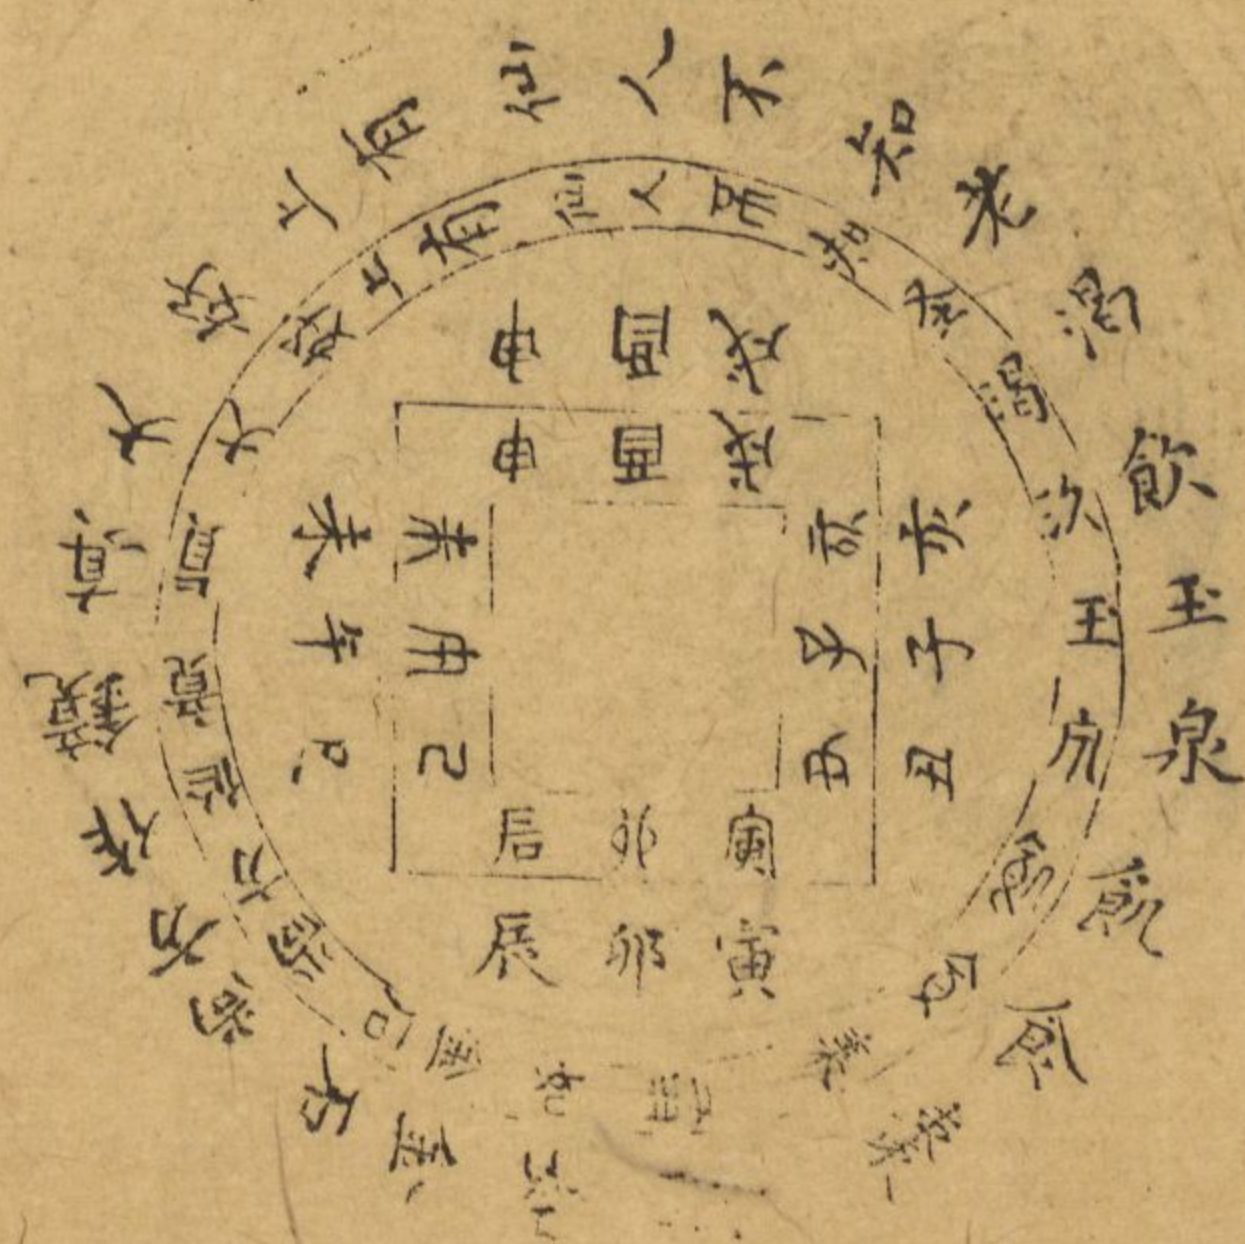 尚方作鏡真大好上有仙人不知老渴飲玉泉飢食棗金石
尚方作竟真大好上有仙人不知老渴次玉泉飢食棗金石
子丑寅卯辰巳午未申酉戌亥
子丑寅卯辰巳午未申酉戌亥